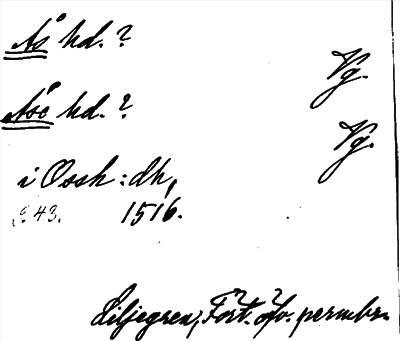 Ås hd. ?
Vg.
Åse hd. ?
Vg.
i Ossh:dh,
s. 43. 1516.
Liljegren, Fört. öfv. permbr.